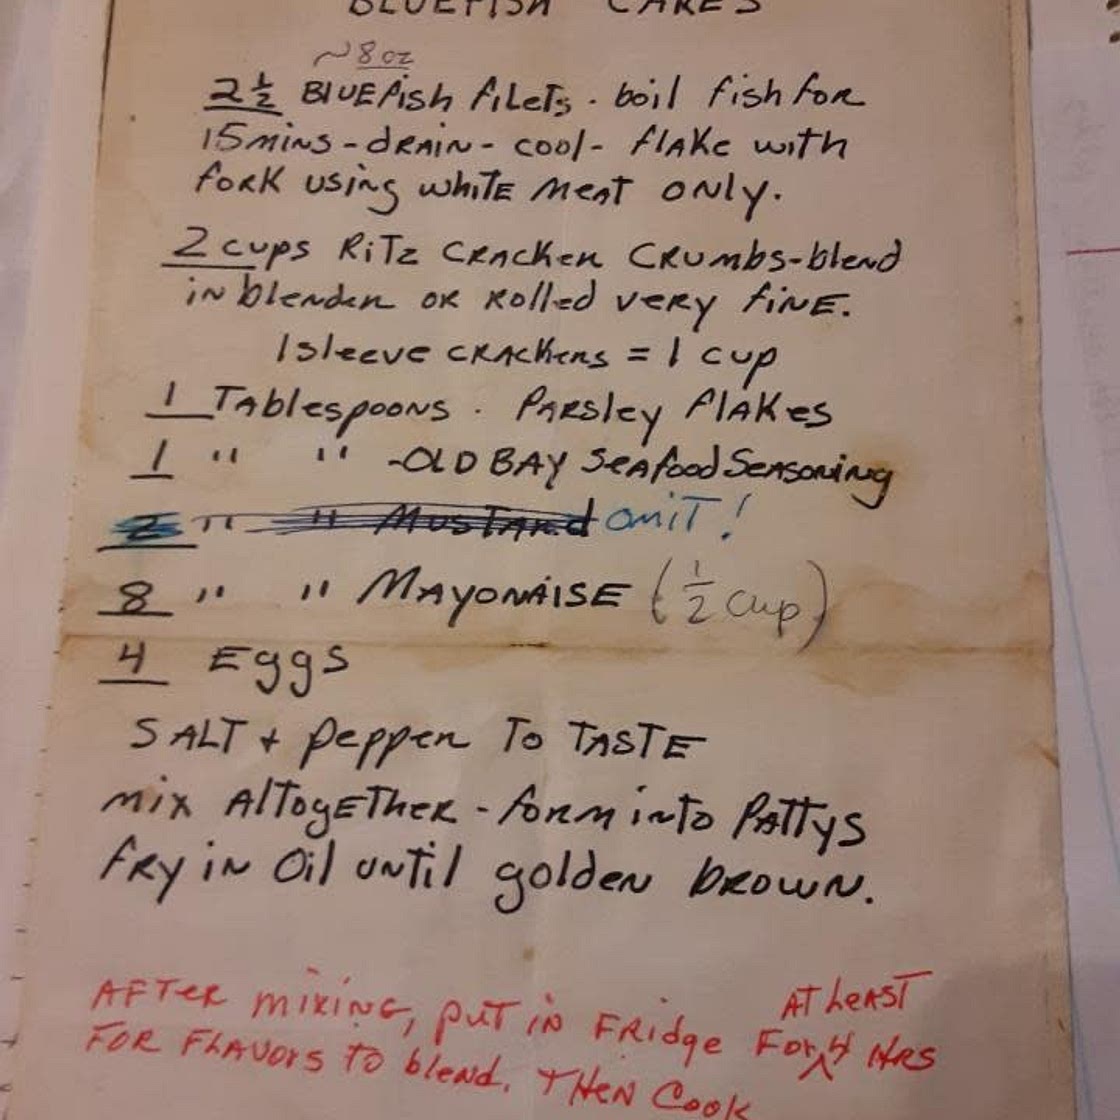 BLUEFISH CAKES
~8 oz
2 1/2 BLUEfish fileTs. boil fish for
15 mins - drain - cool - flake with
fork using white meat only.
2 cups RiTz Cracker Crumbs-blend
in blender or Rolled very fine.
1 sleeve crackers = 1 cup
1 Tablespoons. Parsley flakes
1 " " -OLD BAY Seafood Seasoning
2 " " Mustard omiT!
8 " " MAYONAISE (1/2 cup)
4 Eggs
SALT + pepper To TASTE
mix AlTogeTher - form into Pattys
fry in Oil until golden brown.
AT LEAST
AFTER mixing, put in Fridge For ^ 4 HRS
FOR FLAVORS To blend. THEN COOK